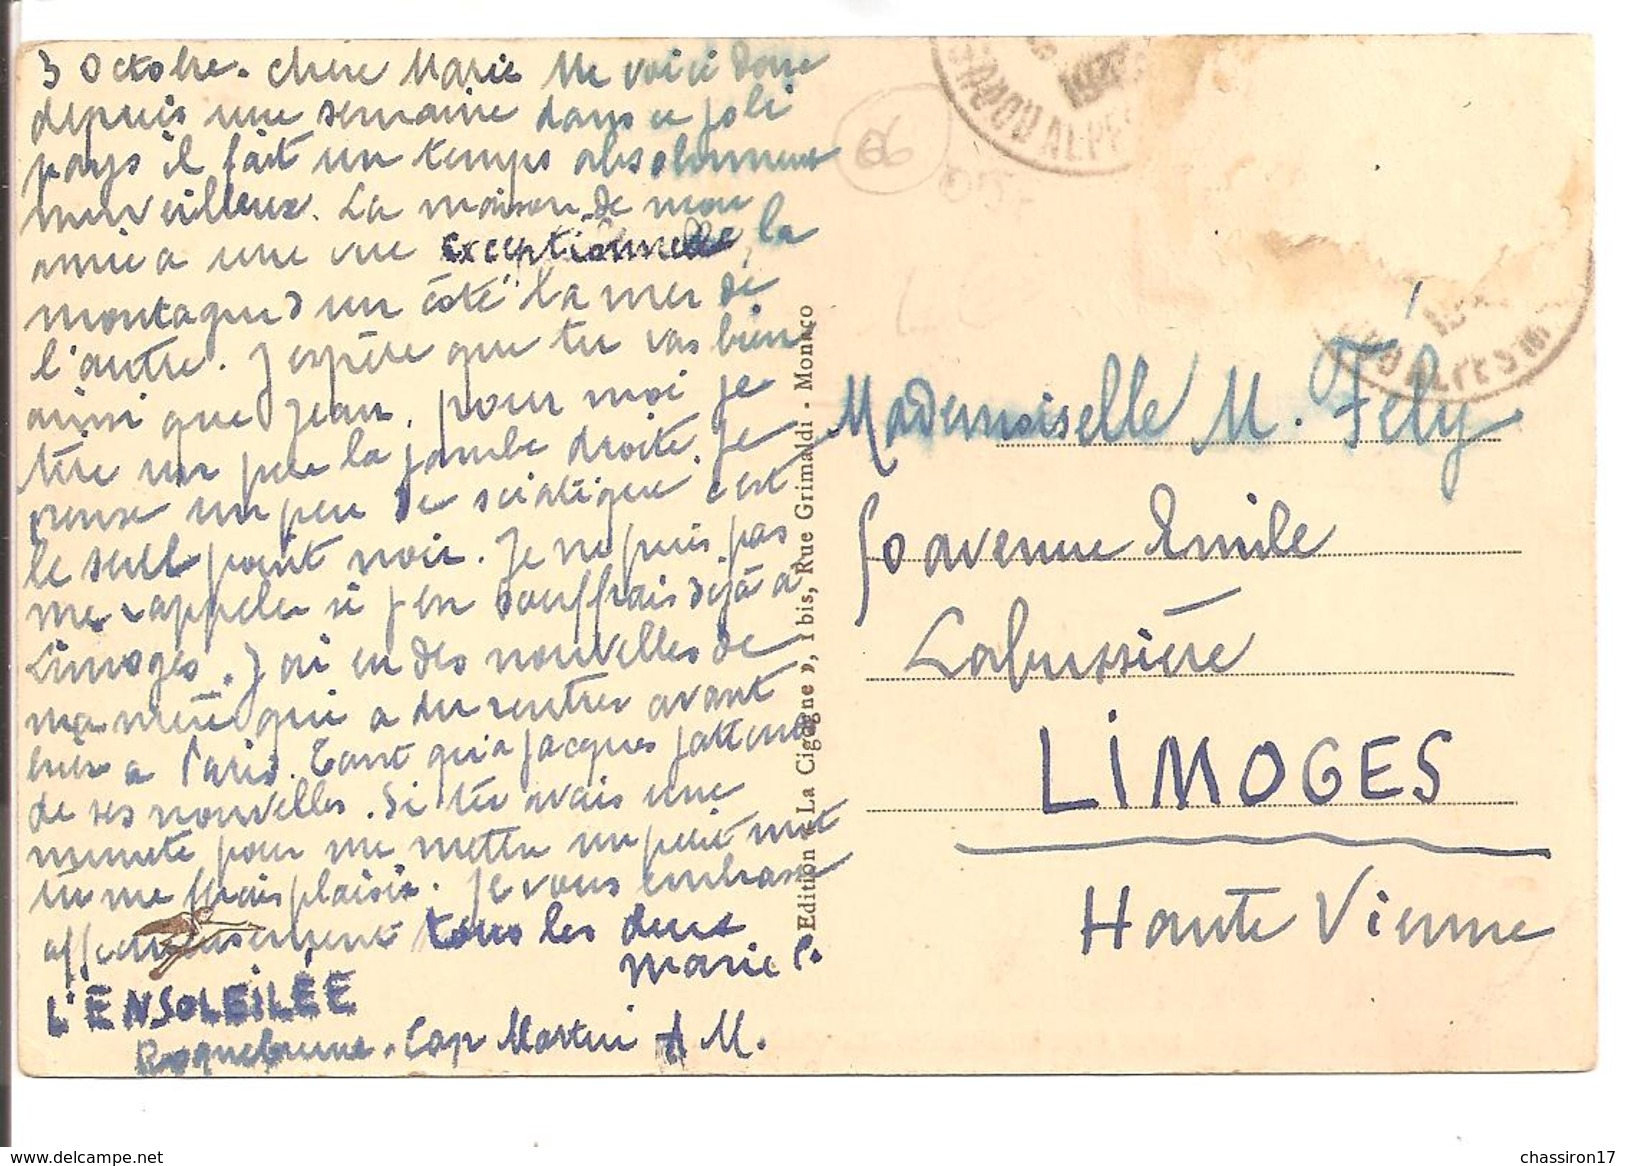 3 Octobre. Chère Marie Me voici donc
depuis une semaine dans ce joli
pays il fait un temps absolument
merveilleux. La maison de mon
amie a une vue exceptionnelle, la
montagne d'un côté la mer de
l'autre. J'espère que tu vas bien
ainsi que Jean, pour moi je
tire un peu la jambe droite. Je
pense un peu de sciatique c'est
le seul point noir. Je ne puis pas
me rappeler si j'en souffrais déjà à
Limoges. J'ai eu des nouvelles de
ma mère qui a du rentrer avant
hier a Paris. Tant qu'a Jacques j'attends
de ses nouvelles. Si tu avais une
minute pour me mettre un petit mot
tu me ferais plaisir. Je vous embrasse
affectueusement tous les deux
Marie P.
L'ENSOLEILÉE
Roquebrune-Cap Martin A M.
Edition « La Cigogne », 1 bis, Rue Grimaldi - Monaco
66
Mademoiselle M. Fély
50 avenue Emile
Labussière
LIMOGES
Haute Vienne
www.delcampe.net
chassiron17